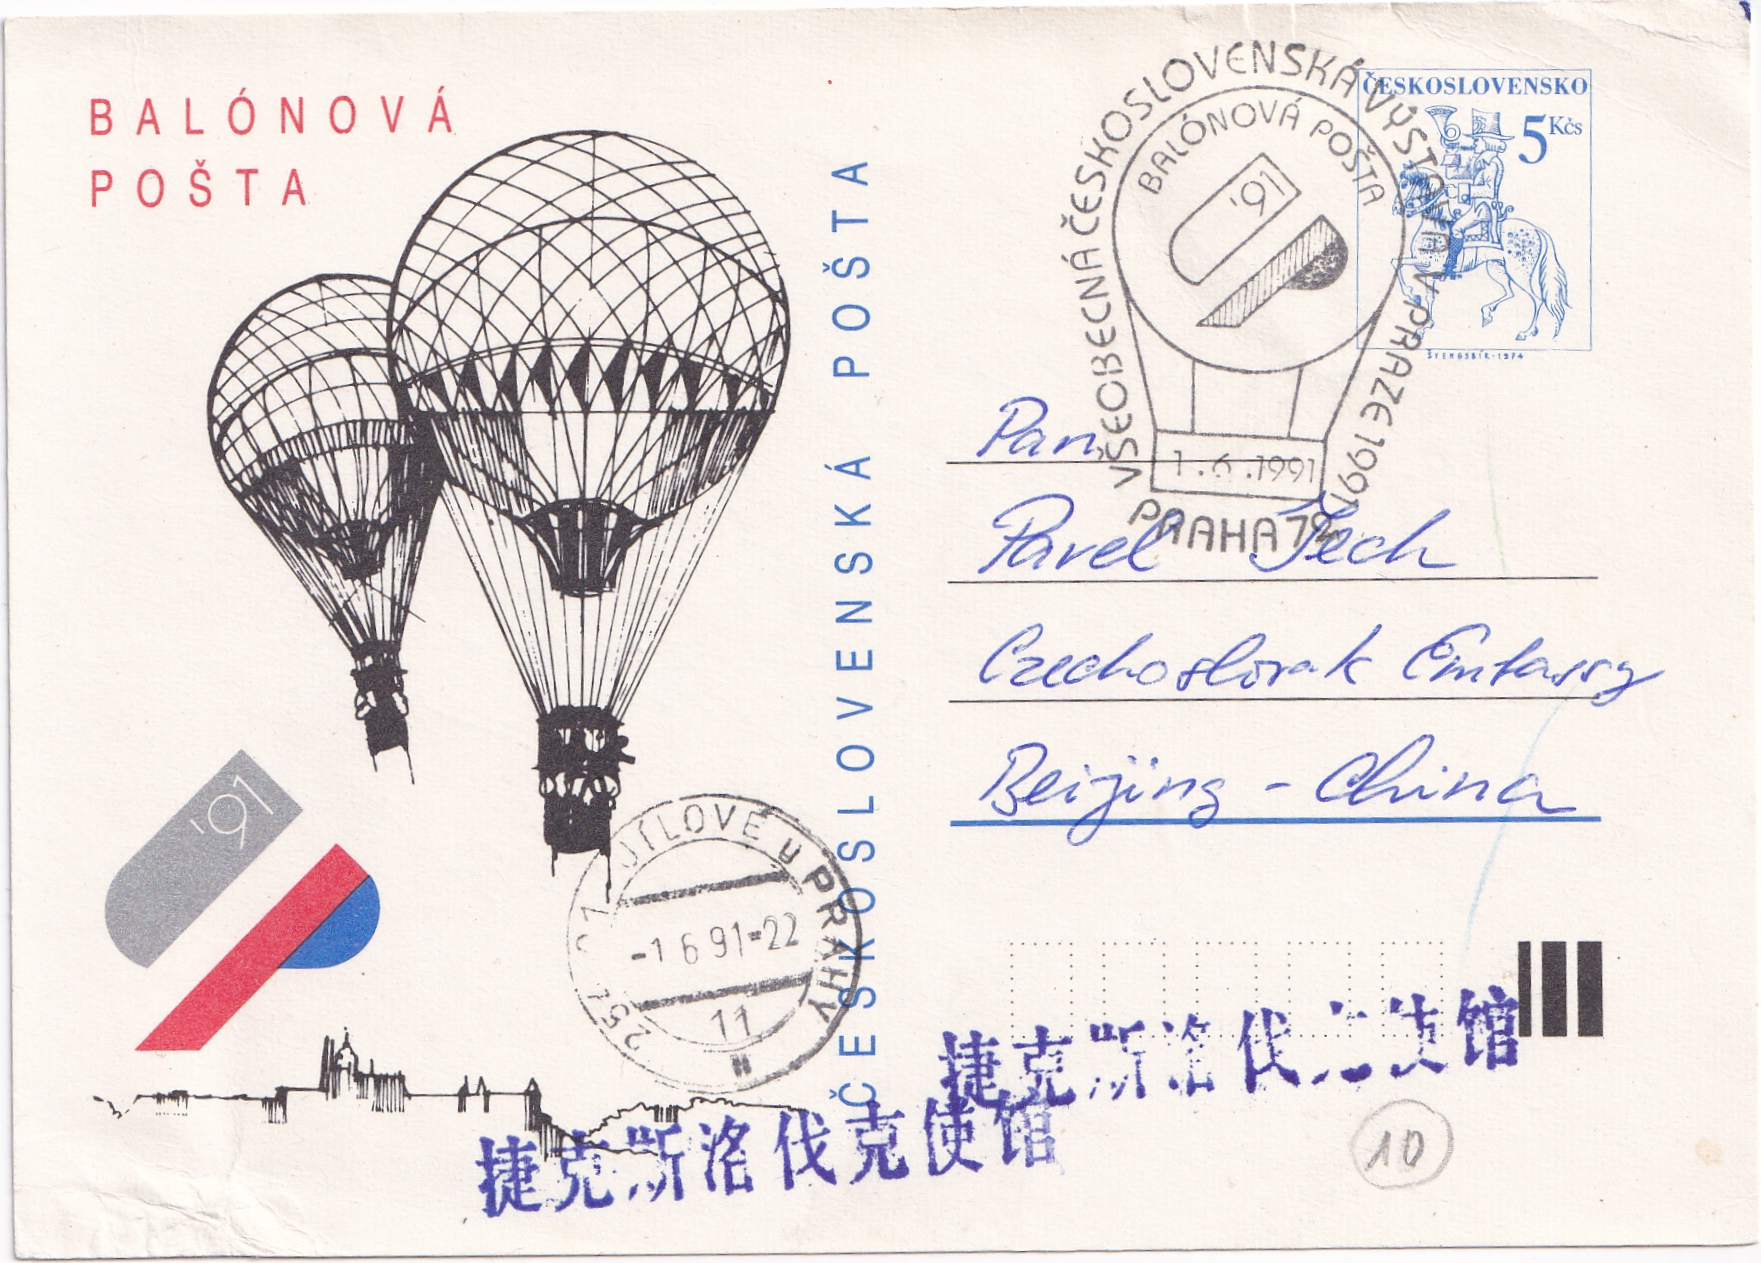 BALÓNOVÁ
POŠTA
'91
ČESKOSLOVENSKÁ POŠTA
VŠEOBECNÁ ČESKOSLOVENSKÁ VÝSTAVA V PRAZE 1991
BALÓNOVÁ POŠTA
'91
1.6.1991
PRAHA 72
ČESKOSLOVENSKO
5 Kčs
ŠVENGSBÍR·1974
Pan
Pavel Jech
Czechoslovak Embassy
Beijing - China
JÍLOVÉ u PRAHY
-1 6 91-22
11
捷克斯洛伐克使馆
捷克斯洛伐克使馆
10